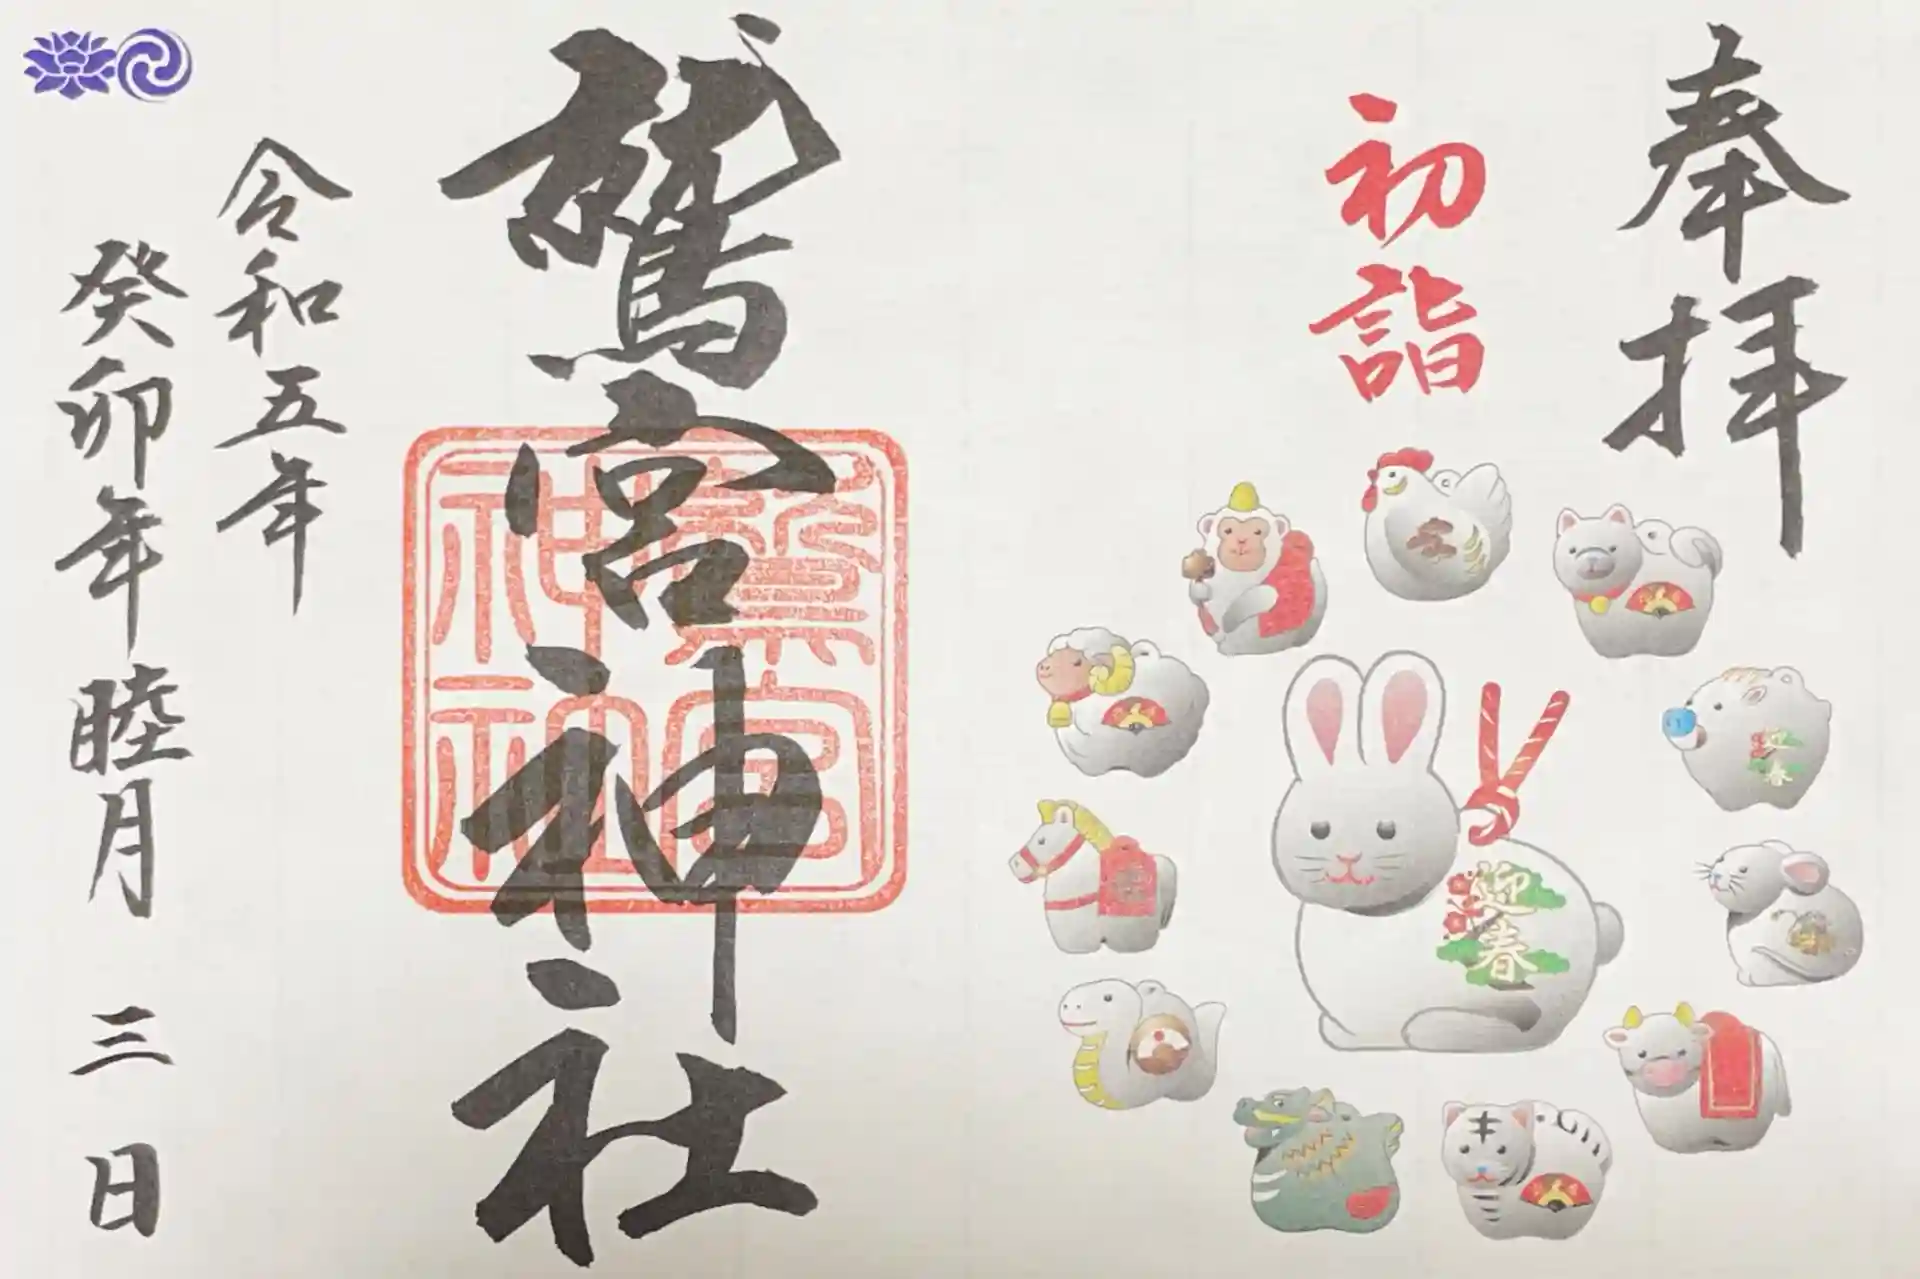 奉拝
初詣
迎春
迎
春
鷲宮神社
鷲宮
神社
令和五年
癸卯年睦月 三日